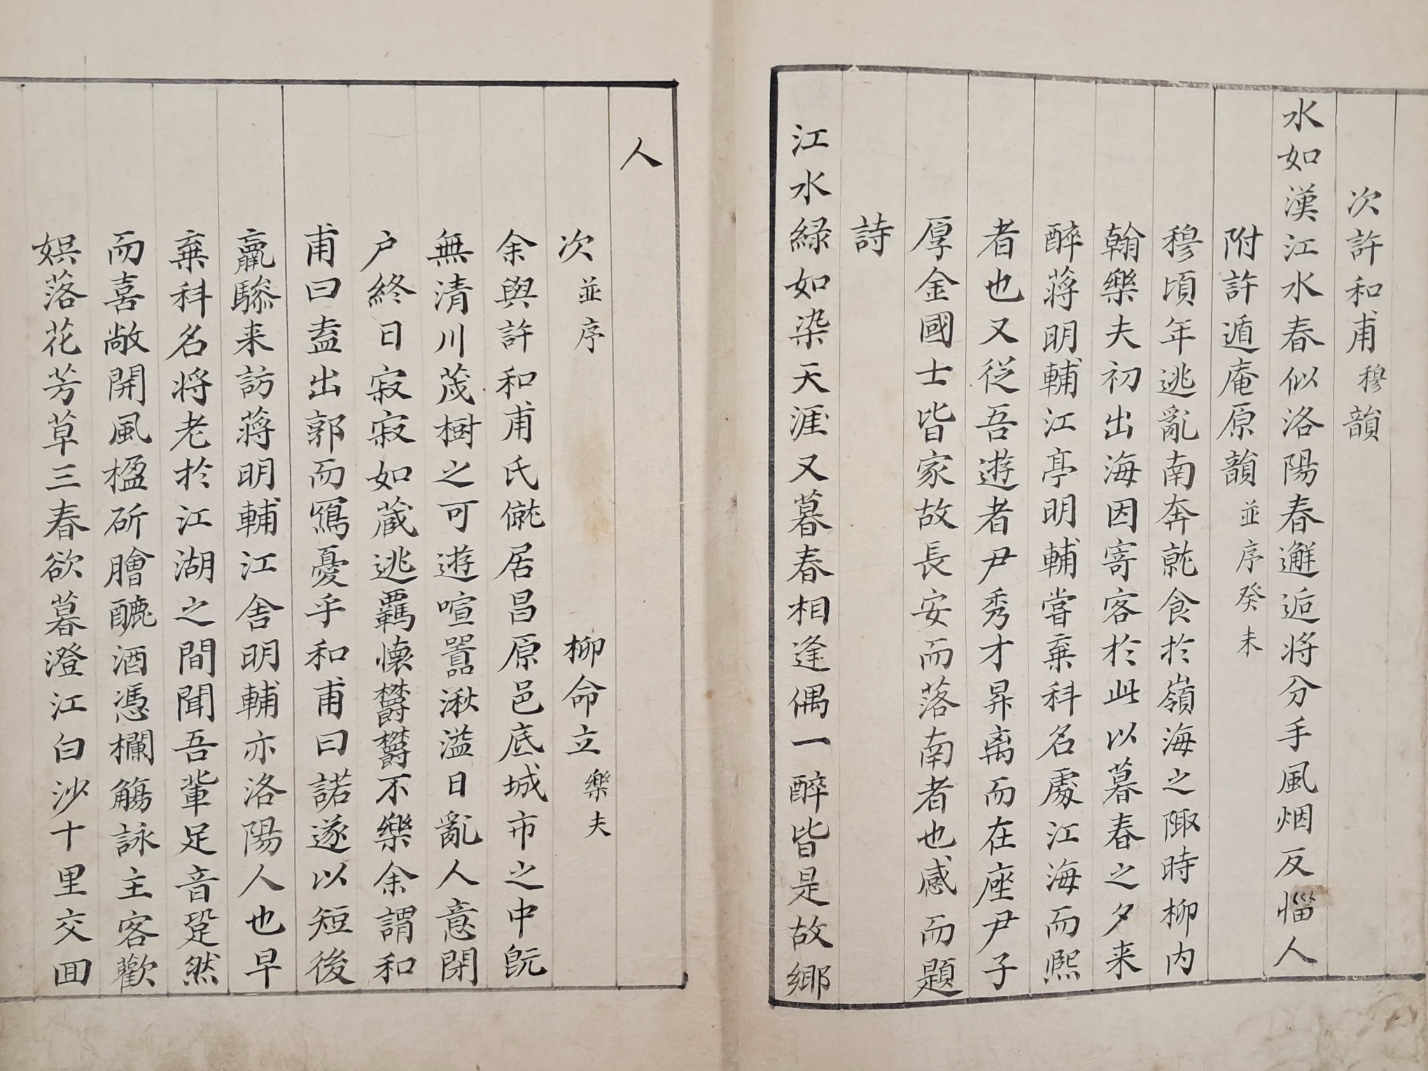 次許和甫穆韻
水如漢江水春似洛陽春邂逅将分手風烟反惱人
附許遁庵原韻並序癸未
穆頃年逃亂南奔就食於嶺海之陬時柳内
翰樂夫初出海因寄客於此以暮春之夕来
醉蔣明輔江亭明輔嘗棄科名處江海而熙
者也又從吾遊者尹秀才昇离而在座尹子
厚金國士皆家故長安而落南者也感而題
詩
江水緑如染天涯又暮春相逢偶一醉皆是故鄉
人
次並序 柳命立樂夫
余與許和甫氏僦居昌原邑底城市之中旣
無清川茂樹之可遊喧囂湫溢日亂人意閉
户終日寂寂如蔵逃羇懐欝欝不樂余謂和
甫曰盍出郭而寫憂乎和甫曰諾遂以短後
羸驂来訪蔣明輔江舍明輔亦洛陽人也早
棄科名将老於江湖之間聞吾軰足音跫然
而喜敞開風楹斫膾釃酒憑欄觴詠主客歡
娯落花芳草三春欲暮澄江白沙十里交回